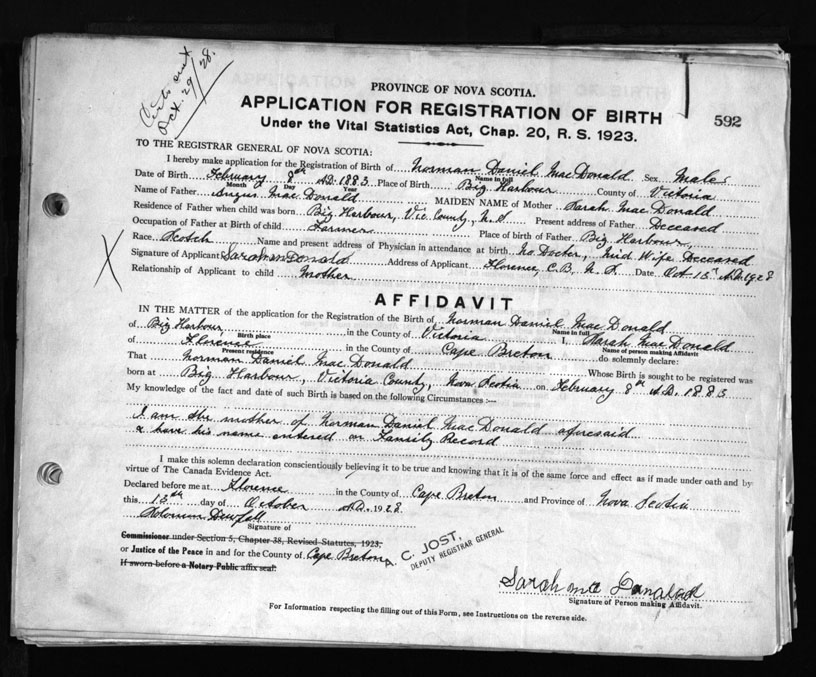 Oct. 29/28.
PROVINCE OF NOVA SCOTIA.
APPLICATION FOR REGISTRATION OF BIRTH
592
Under the Vital Statistics Act, Chap. 20, R. S. 1923.
TO THE REGISTRAR GENERAL OF NOVA SCOTIA:
I hereby make application for the Registration of Birth of Norman Daniel MacDonald Sex Male
Name in full
Date of Birth February 8th A.D. 1883 Place of Birth Big Harbour County of Victoria
Month Day Year
Name of Father Angus MacDonald MAIDEN NAME of Mother Sarah MacDonald
Residence of Father when child was born Big Harbour, Vic. County, N.S Present address of Father Deceased
Occupation of Father at Birth of child Farmer Place of birth of Father Big Harbour,
Race Scotch Name and present address of Physician in attendance at birth No Doctor, Mid Wife Deceased
X
Signature of Applicant Sarah McDonald Address of Applicant Florence, C.B., N.S. Date Oct 15th A.D. 1928
Relationship of Applicant to child Mother
AFFIDAVIT
IN THE MATTER of the application for the Registration of the Birth of Norman Daniel MacDonald
Name in full
of Big Harbour in the County of Victoria I, Sarah MacDonald
Birth place Name of person making Affidavit
of Florence in the County of Cape Breton do solemnly declare:
Present residence
That Norman Daniel MacDonald Whose Birth is sought to be registered was
born at Big Harbour, Victoria County, Nova Scotia on February 8th A.D. 1883
My knowledge of the fact and date of such Birth is based on the following Circumstances :—
I am the mother of Norman Daniel MacDonald aforesaid
& have his name entered on Family Record
I make this solemn declaration conscientiously believing it to be true and knowing that it is of the same force and effect as if made under oath and by
virtue of The Canada Evidence Act.
Declared before me at Florence in the County of Cape Breton and Province of Nova Scotia
this 15th day of October A.D. 1928
Signature of
Commissioner under Section 5, Chapter 38, Revised Statutes, 1923,
or Justice of the Peace in and for the County of Cape Breton
C. JOST,
DEPUTY REGISTRAR GENERAL
If sworn before a Notary Public affix seal.
Sarah Mc Donald
Signature of Person making Affidavit.
For Information respecting the filling out of this Form, see Instructions on the reverse side.